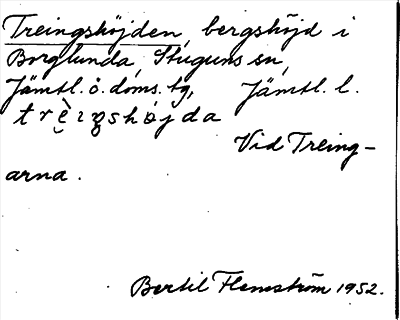 Treingshöjden, bergshöjd i
Borglunda, Stuguns sn,
Jämtl. ö. doms. tg, Jämtl. l.
trèiŋshöjda
Vid Treing-
arna.
Bertil Flemström 1952.